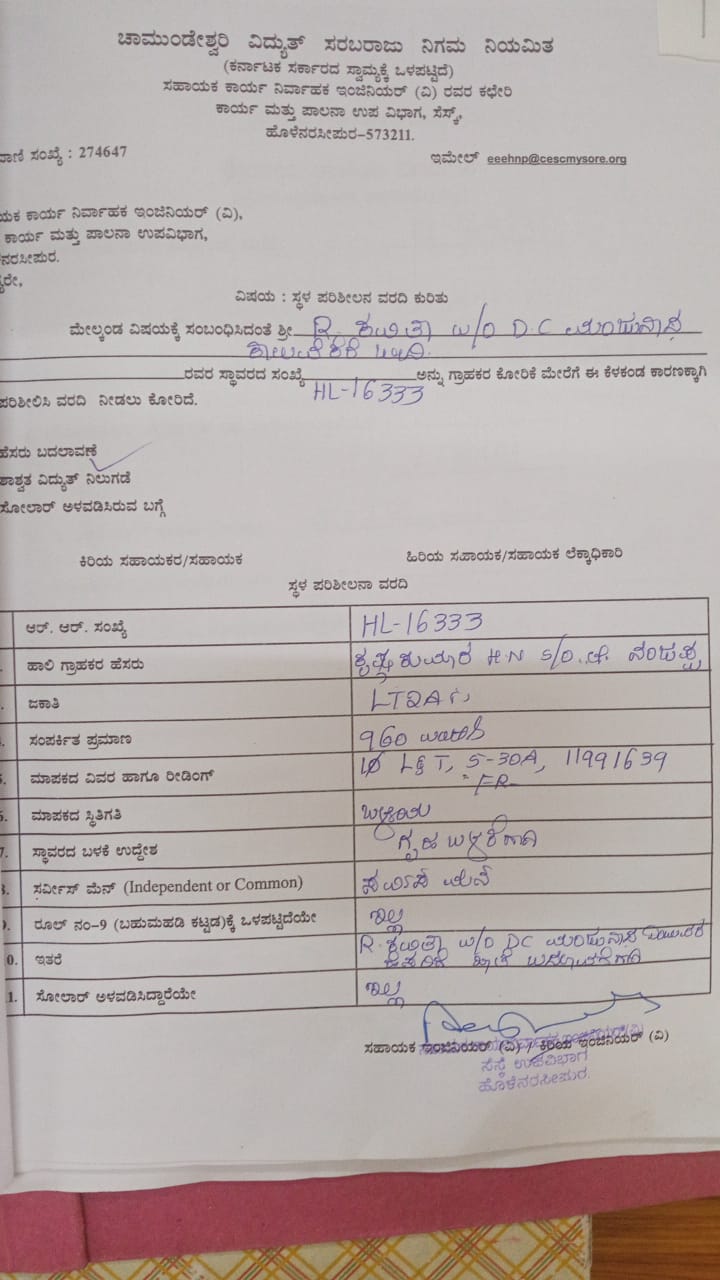 ಚಾಮುಂಡೇಶ್ವರಿ ವಿದ್ಯುತ್ ಸರಬರಾಜು ನಿಗಮ ನಿಯಮಿತ
(ಕರ್ನಾಟಕ ಸರ್ಕಾರದ ಸ್ವಾಮ್ಯಕ್ಕೆ ಒಳಪಟ್ಟಿದೆ)
ಸಹಾಯಕ ಕಾರ್ಯ ನಿರ್ವಾಹಕ ಇಂಜಿನಿಯರ್ (ವಿ) ರವರ ಕಛೇರಿ
ಕಾರ್ಯ ಮತ್ತು ಪಾಲನಾ ಉಪ ವಿಭಾಗ, ಸೆಸ್ಕ್,
ಹೊಳೆನರಸೀಪುರ-573211.
ವಾಣಿ ಸಂಖ್ಯೆ : 274647 ಇಮೇಲ್ eeehnp@cescmysore.org
ಯಕ ಕಾರ್ಯ ನಿರ್ವಾಹಕ ಇಂಜಿನಿಯರ್ (ವಿ),
ಕಾರ್ಯ ಮತ್ತು ಪಾಲನಾ ಉಪವಿಭಾಗ,
ನರಸೀಪುರ.
ರೇ,
ವಿಷಯ : ಸ್ಥಳ ಪರಿಶೀಲನ ವರದಿ ಕುರಿತು
ಮೇಲ್ಕಂಡ ವಿಷಯಕ್ಕೆ ಸಂಬಂಧಿಸಿದಂತೆ ಶ್ರೀ R. ಕವಿತಾ W/O D.C ಮಂಜುನಾಥ
ರವರ ಸ್ಥಾವರದ ಸಂಖ್ಯೆ HL-16333 ಅನ್ನು ಗ್ರಾಹಕರ ಕೋರಿಕೆ ಮೇರೆಗೆ ಈ ಕೆಳಕಂಡ ಕಾರಣಕ್ಕಾಗಿ
ಪರಿಶೀಲಿಸಿ ವರದಿ ನೀಡಲು ಕೋರಿದೆ.
ಹೆಸರು ಬದಲಾವಣೆ
ಶಾಶ್ವತ ವಿದ್ಯುತ್ ನಿಲುಗಡೆ
ಸೋಲಾರ್ ಅಳವಡಿಸಿರುವ ಬಗ್ಗೆ
ಕಿರಿಯ ಸಹಾಯಕರ/ಸಹಾಯಕ ಹಿರಿಯ ಸಹಾಯಕ/ಸಹಾಯಕ ಲೆಕ್ಕಾಧಿಕಾರಿ
ಸ್ಥಳ ಪರಿಶೀಲನಾ ವರದಿ
ಆರ್. ಆರ್. ಸಂಖ್ಯೆ HL-16333
ಹಾಲಿ ಗ್ರಾಹಕರ ಹೆಸರು ಕೃಷ್ಣಕುಮಾರ H.N S/O.
ಜಕಾತಿ LT2A
ಸಂಪರ್ಕಿತ ಪ್ರಮಾಣ 960 ವಾಟ್ಸ್
ಮಾಪಕದ ವಿವರ ಹಾಗೂ ರೀಡಿಂಗ್ 1Φ L&T, 5-30A, 11991639
FR-
6. ಮಾಪಕದ ಸ್ಥಿತಿಗತಿ
7. ಸ್ಥಾವರದ ಬಳಕೆ ಉದ್ದೇಶ ಗೃಹ ಬಳಕೆಗಾಗಿ
8. ಸರ್ವೀಸ್ ಮೆನ್ (Independent or Common) ಸರ್ವಿಸ್ ಮೇನ್
9. ರೂಲ್ ನಂ-9 (ಬಹುಮಹಡಿ ಕಟ್ಟಡ)ಕ್ಕೆ ಒಳಪಟ್ಟಿದೆಯೇ ಇಲ್ಲ
0. ಇತರೆ R. ಕವಿತಾ W/O DC ಮಂಜುನಾಥ
ಹೆಸರಿಗೆ ಖಾತೆ ಬದಲಾವಣೆಗಾಗಿ
1. ಸೋಲಾರ್ ಅಳವಡಿಸಿದ್ದಾರೆಯೇ ಇಲ್ಲ
ಸಹಾಯಕ ಇಂಜಿನಿಯರ್ (ವಿ) / ಕಿರಿಯ ಇಂಜಿನಿಯರ್ (ವಿ)
ಸೆಸ್ಕ್ ಉಪವಿಭಾಗ
ಹೊಳೆನರಸೀಪುರ.